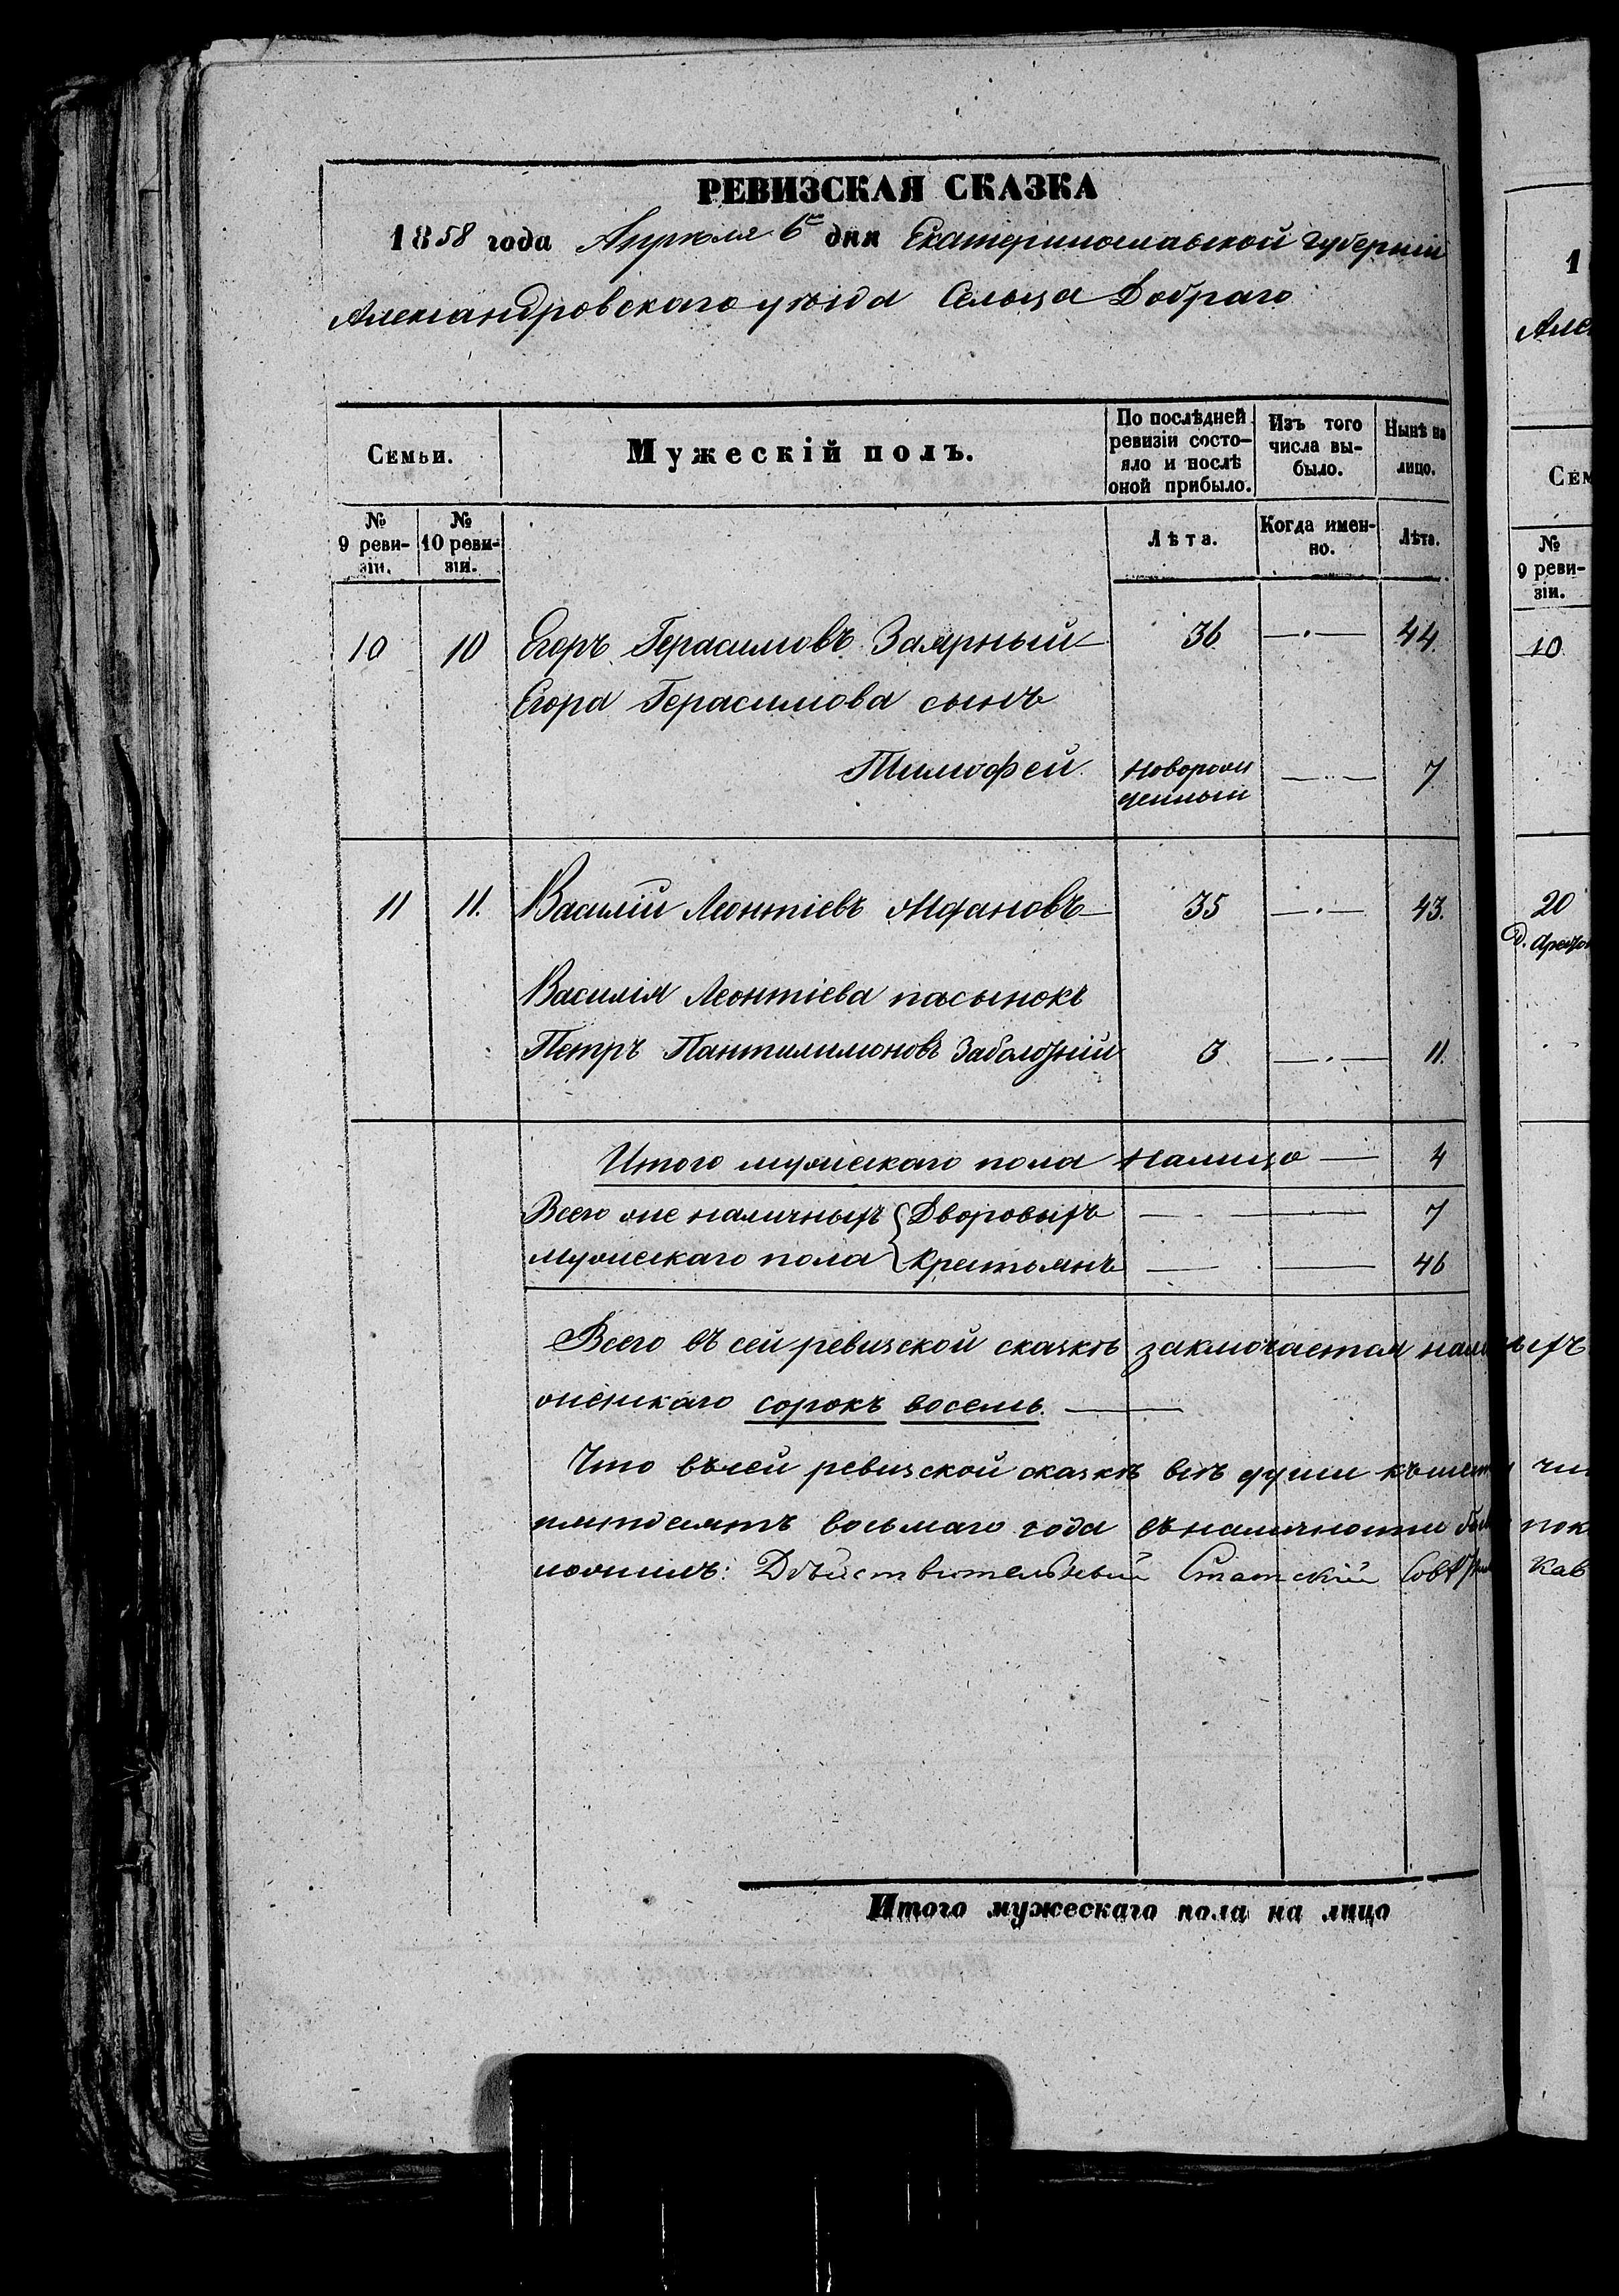 РЕВИЗСКАЯ СКАЗКА
1858 года Апрѣля 6го дня Екатеринославской губерніи
Александровскаго уѣзда Сельца Добраго
Семьи.
Мужескій полъ.
По послѣдней ревизіи состояло и послѣ оной прибыло.
Изъ того числа выбыло.
Нынѣ на лицо.
№ 9 ревизіи.
№ 10 ревизіи.
Лѣта.
Когда именно.
Лѣта.
10 10 Егоръ Герасимовъ Заярный 36 44.
Егора Герасимова сынъ
Тимофей новорожденный 7
11 11. Василій Леонтіевъ 35 43.
Василія Леонтіева пасынокъ
Петръ Пантилимоновъ Заболотній 3 11.
Итого мужескаго пола налицо 4
Всего же наличныхъ Дворовыхъ 7
мужескаго пола Крестьянъ 46
Всего въ сей ревизской сказкѣ заключается
женскаго сорокъ восемь.
Что въ сей ревизской сказкѣ всѣ души къ
пятьдесятъ восьмаго года въ наличности
Дѣйствительный Статскій
Итого мужескаго пола на лицо
1
Але
Сем
№
9 реви-
зіи.
10
20